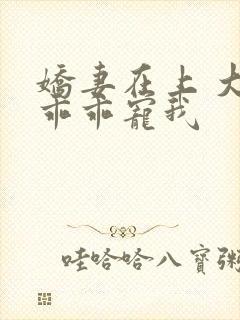 嬌妻在上 大
乖乖寵我
哇哈哈八寶粥